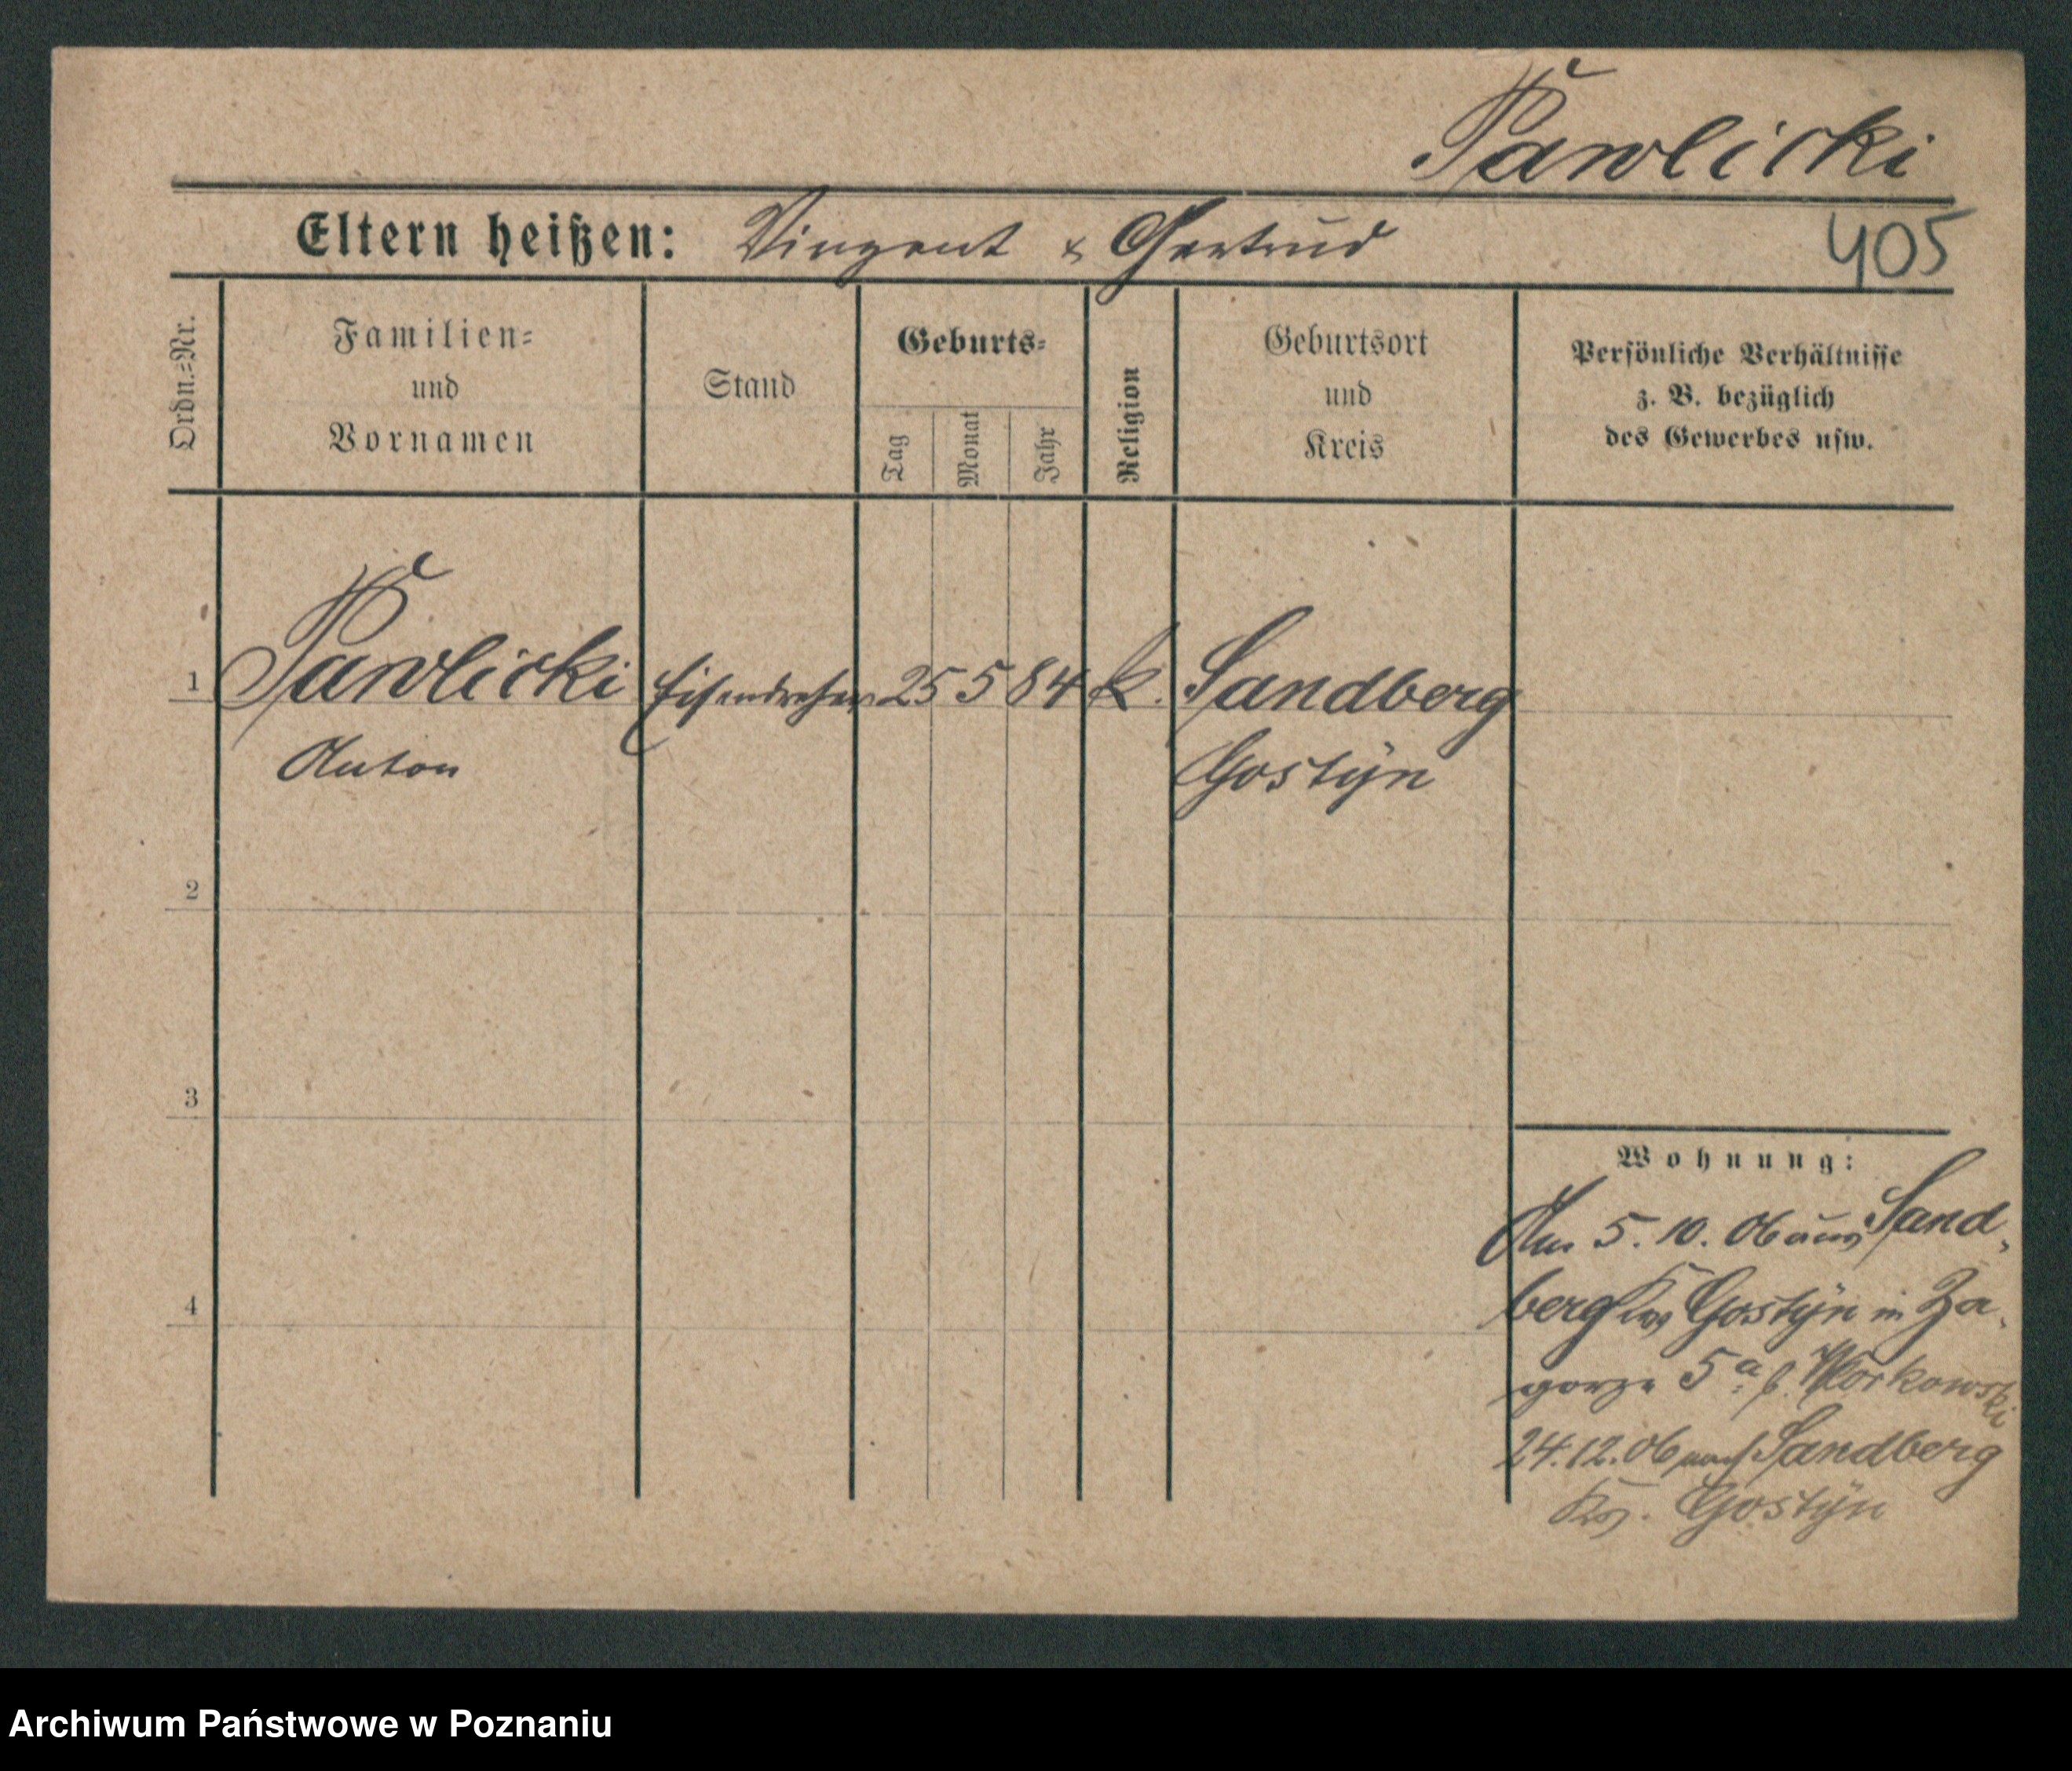 Pawlicki
Eltern heißen: Vinzent & Gertrud
405
Ordn.-Nr.
Familien-
und
Vornamen
Stand
Geburts-
Tag
Monat
Jahr
Religion
Geburtsort
und
Kreis
Persönliche Verhältnisse
z. B. bezüglich
des Gewerbes usw.
1 Pawlicki Eisendreher 25 5 84 k. Sandberg
Anton Gostÿn
2
3
4
Wohnung:
Am 5. 10. 06 aus Sand-
berg Krs Gostÿn in Za-
gorze 5a. b. Morkowski
24.12.06 nach Sandberg
Krs. Gostÿn
Archiwum Państwowe w Poznaniu